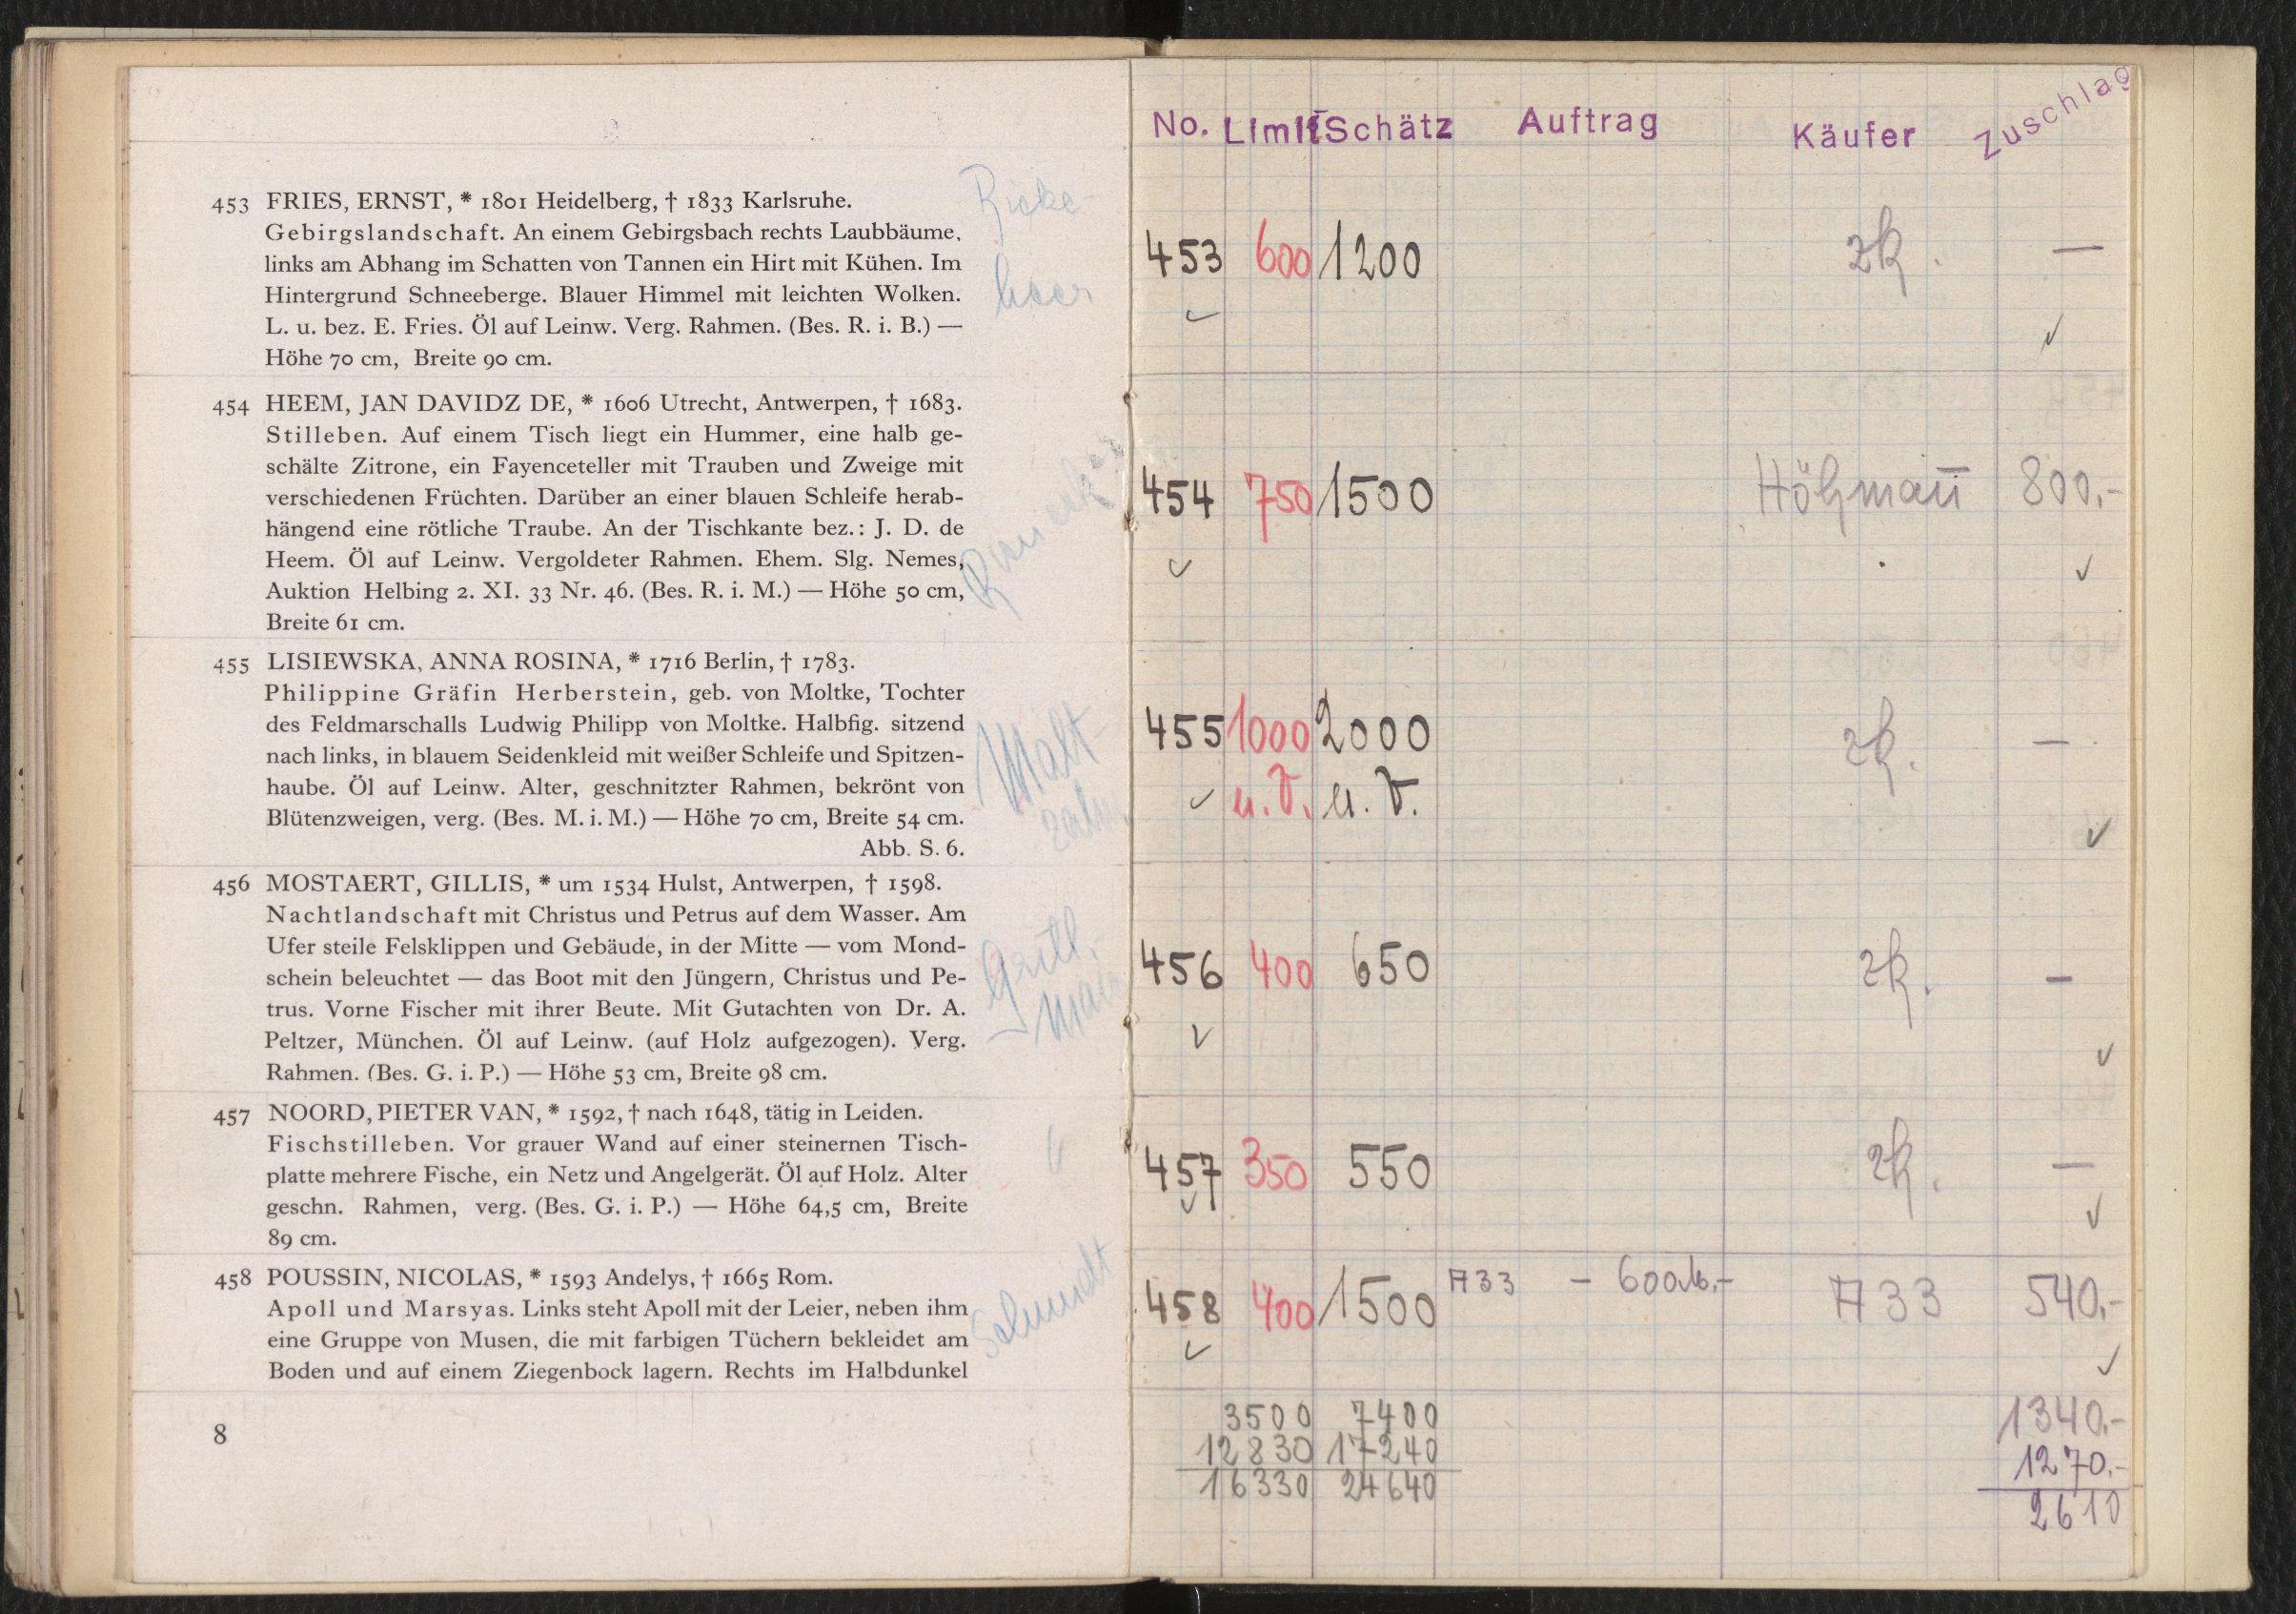 453 FRIES, ERNST, * 1801 Heidelberg, † 1833 Karlsruhe.
Gebirgslandschaft. An einem Gebirgsbach rechts Laubbäume,
links am Abhang im Schatten von Tannen ein Hirt mit Kühen. Im
Hintergrund Schneeberge. Blauer Himmel mit leichten Wolken.
L. u. bez. E. Fries. Öl auf Leinw. Verg. Rahmen. (Bes. R. i. B.) —
Höhe 70 cm, Breite 90 cm.
454 HEEM, JAN DAVIDZ DE, * 1606 Utrecht, Antwerpen, † 1683.
Stilleben. Auf einem Tisch liegt ein Hummer, eine halb ge-
schälte Zitrone, ein Fayenceteller mit Trauben und Zweige mit
verschiedenen Früchten. Darüber an einer blauen Schleife herab-
hängend eine rötliche Traube. An der Tischkante bez.: J. D. de
Heem. Öl auf Leinw. Vergoldeter Rahmen. Ehem. Slg. Nemes,
Auktion Helbing 2. XI. 33 Nr. 46. (Bes. R. i. M.) — Höhe 50 cm,
Breite 61 cm.
455 LISIEWSKA, ANNA ROSINA, * 1716 Berlin, † 1783.
Philippine Gräfin Herberstein, geb. von Moltke, Tochter
des Feldmarschalls Ludwig Philipp von Moltke. Halbfig. sitzend
nach links, in blauem Seidenkleid mit weißer Schleife und Spitzen-
haube. Öl auf Leinw. Alter, geschnitzter Rahmen, bekrönt von
Blütenzweigen, verg. (Bes. M. i. M.) — Höhe 70 cm, Breite 54 cm.
Abb. S. 6.
456 MOSTAERT, GILLIS, * um 1534 Hulst, Antwerpen, † 1598.
Nachtlandschaft mit Christus und Petrus auf dem Wasser. Am
Ufer steile Felsklippen und Gebäude, in der Mitte — vom Mond-
schein beleuchtet — das Boot mit den Jüngern, Christus und Pe-
trus. Vorne Fischer mit ihrer Beute. Mit Gutachten von Dr. A.
Peltzer, München. Öl auf Leinw. (auf Holz aufgezogen). Verg.
Rahmen. (Bes. G. i. P.) — Höhe 53 cm, Breite 98 cm.
457 NOORD, PIETER VAN, * 1592, † nach 1648, tätig in Leiden.
Fischstilleben. Vor grauer Wand auf einer steinernen Tisch-
platte mehrere Fische, ein Netz und Angelgerät. Öl auf Holz. Alter
geschn. Rahmen, verg. (Bes. G. i. P.) — Höhe 64,5 cm, Breite
89 cm.
458 POUSSIN, NICOLAS, * 1593 Andelys, † 1665 Rom.
Apoll und Marsyas. Links steht Apoll mit der Leier, neben ihm
eine Gruppe von Musen, die mit farbigen Tüchern bekleidet am
Boden und auf einem Ziegenbock lagern. Rechts im Halbdunkel
8
No. Limit Schätz Auftrag Käufer Zuschlag
453 600 1200 zk. —
454 750 1500 Höhmann 800.-
455 1000 2000 zk. —
u. V. u. V.
456 400 650 zk. —
457 350 550 zk. —
458 400 1500 A33 - 600 M.- A 33 540.-
3500 7400 1340.-
12830 17240 1270.-
16330 24640 2610